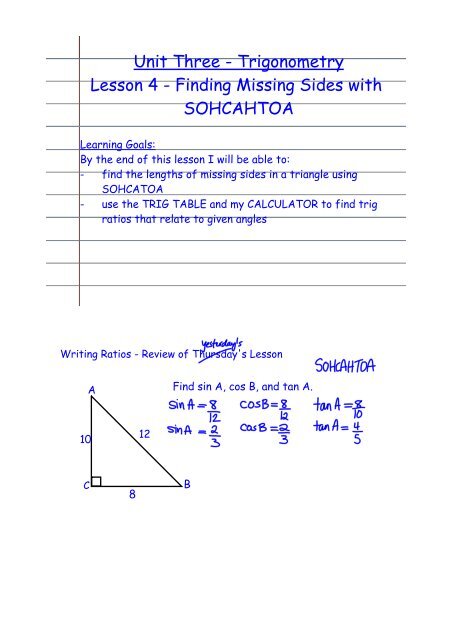 Unit Three - Trigonometry
Lesson 4 - Finding Missing Sides with
SOHCAHTOA
Learning Goals:
By the end of this lesson I will be able to:
- find the lengths of missing sides in a triangle using
SOHCATOA
- use the TRIG TABLE and my CALCULATOR to find trig
ratios that relate to given angles
yesterday's
Writing Ratios - Review of Thursday's Lesson
SOHCAHTOA
Find sin A, cos B, and tan A.
A
10
12
C
8
B
sin A = 8/12 cosB = 8/12 tan A = 8/10
sin A = 2/3 cosB = 2/3 tan A = 4/5